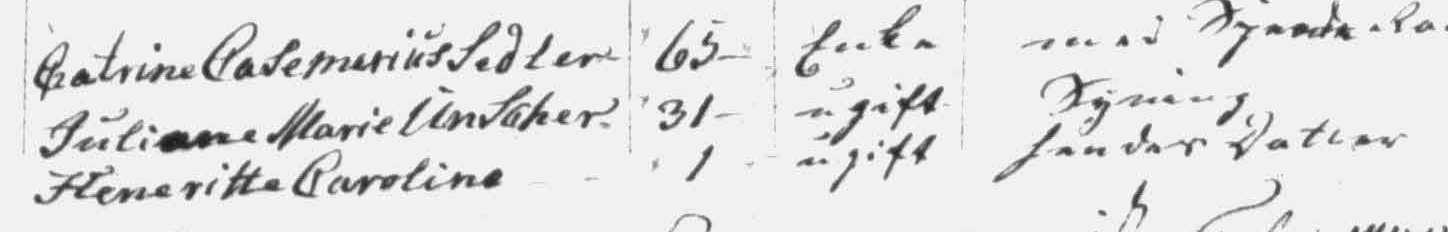 Catrine Casemerius Sedler 65 Enke med
Juliane Marie Unscher. 31 ugift Syning
Heneritte Caroline 1 ugift hendes Datter